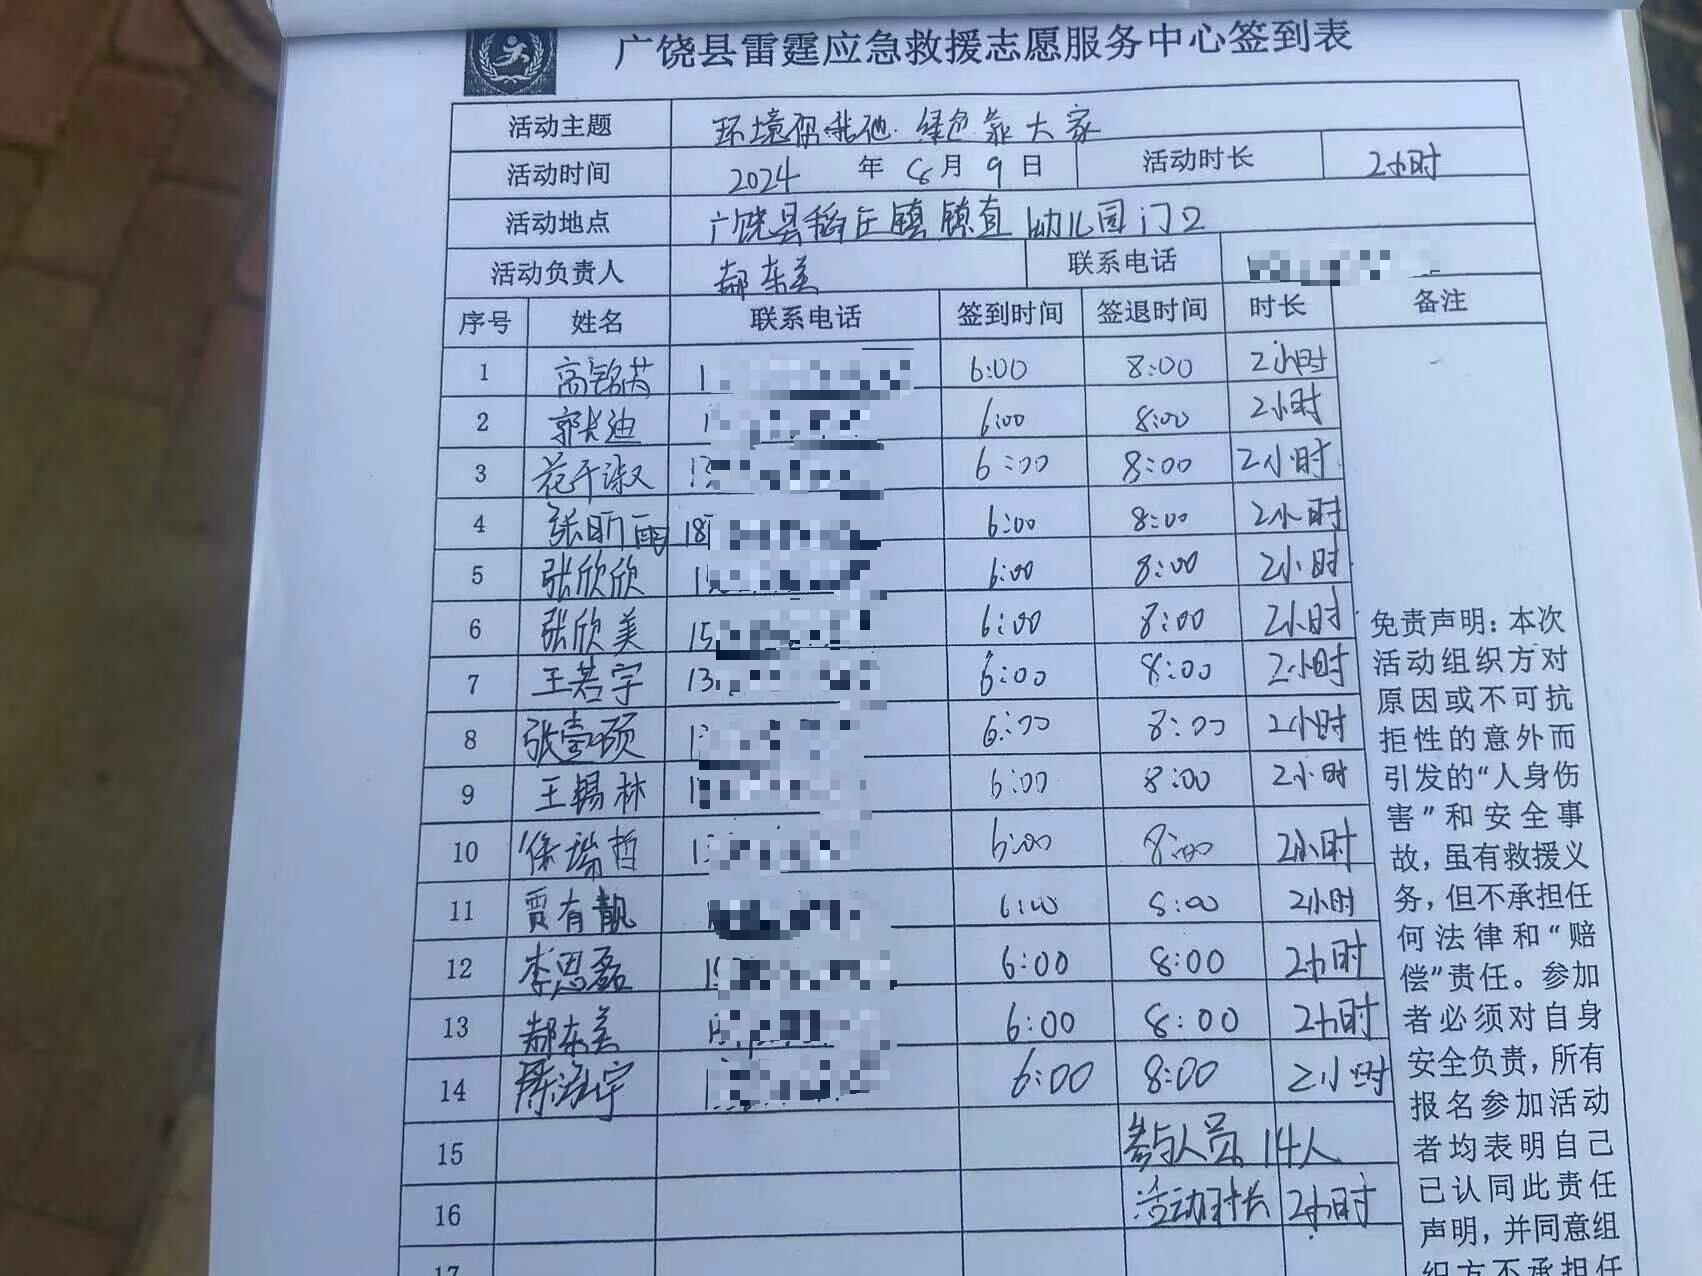 广饶县雷霆应急救援志愿服务中心签到表
活动主题 环境你我他 绿色靠大家
活动时间 2024 年 8月 9 日 活动时长 2小时
活动地点 广饶县稻庄镇镇直幼儿园门口
活动负责人 郝东美 联系电话
序号 姓名 联系电话 签到时间 签退时间 时长 备注
1 高铭茵 1 6:00 8:00 2小时
2 郭长迪 1 6:00 8:00 2小时
3 花千淑 13 6:00 8:00 2小时
4 张昕雨 18 6:00 8:00 2小时
5 张欣欣 1 6:00 8:00 2小时
6 张欣美 15 6:00 8:00 2小时
7 王若宇 13 6:00 8:00 2小时
8 张壹硕 1 6:00 8:00 2小时
9 王锡林 1 6:00 8:00 2小时
10 徐瑞哲 1 6:00 8:00 2小时
11 贾有靓 6:00 8:00 2小时
12 李思磊 1 6:00 8:00 2小时
13 郝东美 1 6:00 8:00 2小时
14 6:00 8:00 2小时
15 参与人员 14人
16 活动时长 2小时
17
免责声明：本次
活动组织方对
原因或不可抗
拒性的意外而
引发的“人身伤
害”和安全事
故，虽有救援义
务，但不承担任
何法律和“赔
偿”责任。参加
者必须对自身
安全负责，所有
报名参加活动
者均表明自己
已认同此责任
声明，并同意组
织方不承担任